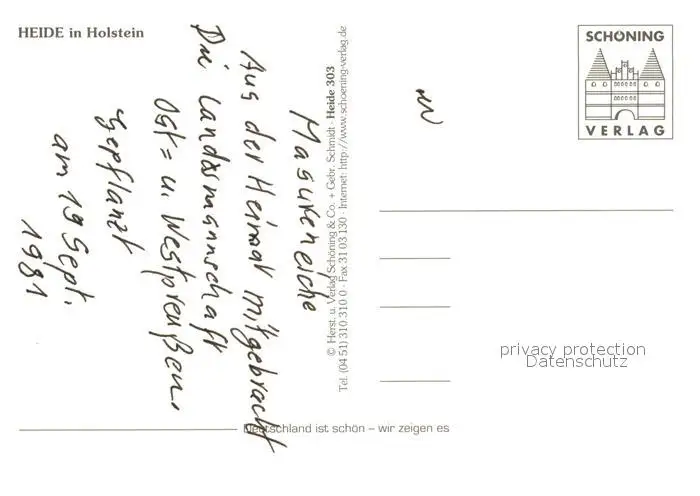 HEIDE in Holstein
Masureneiche
Aus der Heimat mitgebracht
Die Landsmannschaft
Ost= u. Westpreußen.
gepflanzt
am 19 Sept.
1981
© Herst. u. Verlag Schöning & Co. + Gebr. Schmidt · Heide 303
Tel. (04 51) 310 310 0 · Fax 31 03 130 · Internet: http://www.schoening-verlag.de
SCHÖNING
VERLAG
privacy protection
Datenschutz
Deutschland ist schön – wir zeigen es